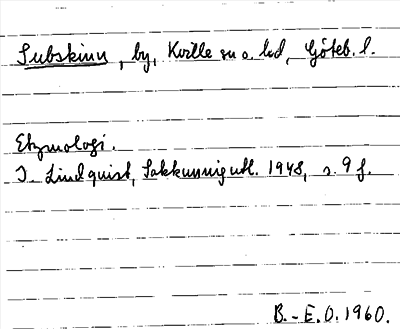 Subskinn, by, Kville sn o. hd, Göteb. l.
Etymologi.
I. Lindquist, Sakkunnigutl. 1948, s. 9 f.
B.-E.O. 1960.